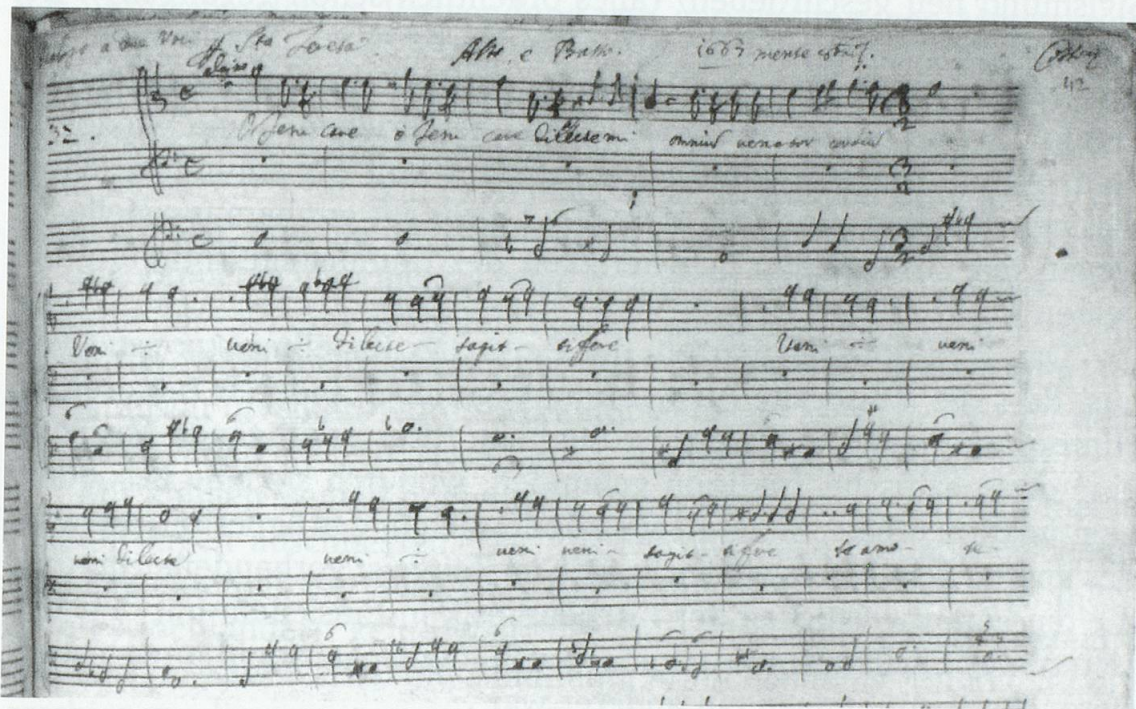 a due Voci Sta Teresa. Alto, e Basso. 1663 mense
42
32.
O Jesu care ô Jesu care dilecte mi omniũ venator cordiũ
Veni ÷ veni ÷ dilecte sagit- tifere Veni ÷ veni
veni dilecte veni ÷ veni veni- sagit- tifere te amo- te-